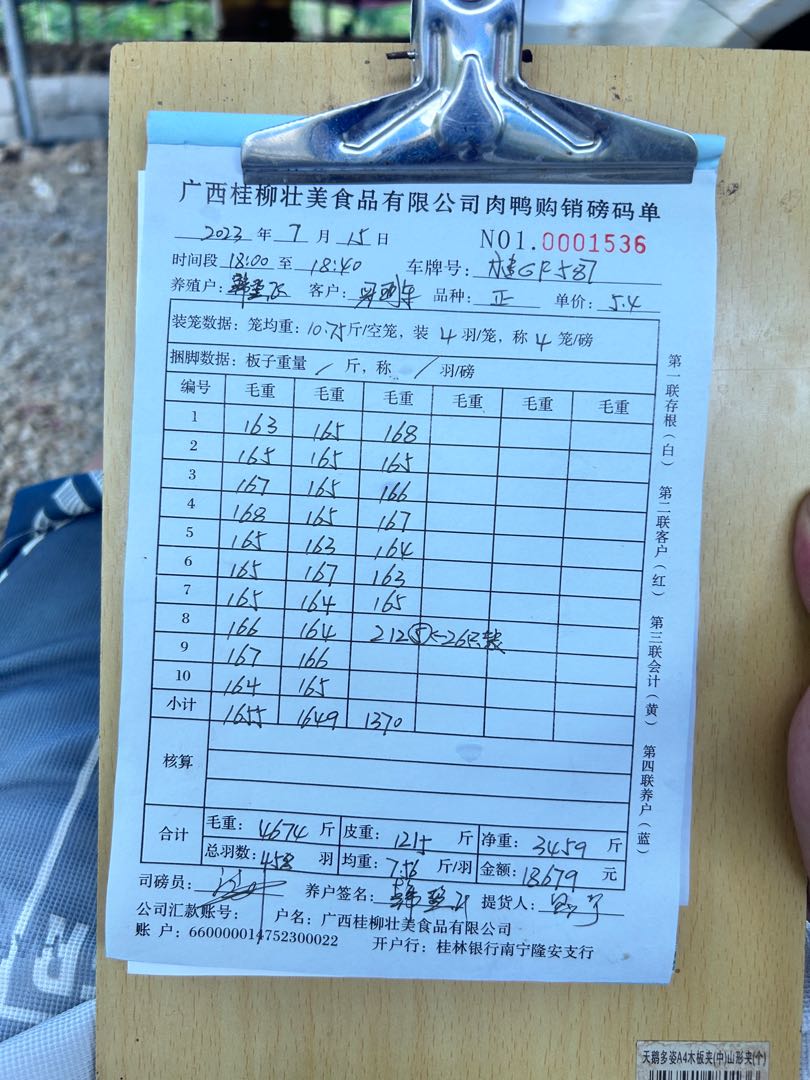 广西桂柳壮美食品有限公司肉鸭购销磅码单
2023 年 7 月 15 日 NO1.0001536
时间段 18:00 至 18:40 车牌号： GF587
养殖户： 客户： 品种： 正 单价： 5.4
装笼数据：笼均重：10.75斤/空笼，装 4 羽/笼，称 4 笼/磅
捆脚数据：板子重量 / 斤，称 / 羽/磅
编号 毛重 毛重 毛重 毛重 毛重 毛重
1 163 165 168
2 165 165 165
3 167 165 166
4 168 165 167
5 165 163 164
6 165 167 163
7 165 164 165
8 166 164 212⑤←26只装
9 167 166
10 164 165
小计 1655 1649 1370
核算
合计 毛重：4674 斤 皮重：1215 斤 净重：3459 斤
总羽数：458 羽 均重：7.56 斤/羽 金额：18679 元
司磅员： 养户签名： 提货人：
公司汇款账号： 户名：广西桂柳壮美食品有限公司
账 户：660000014752300022 开户行：桂林银行南宁隆安支行
第一联存根（白）
第二联客户（红）
第三联会计（黄）
第四联养户（蓝）
天鹅多姿A4木板夹(中)山形夹(个)